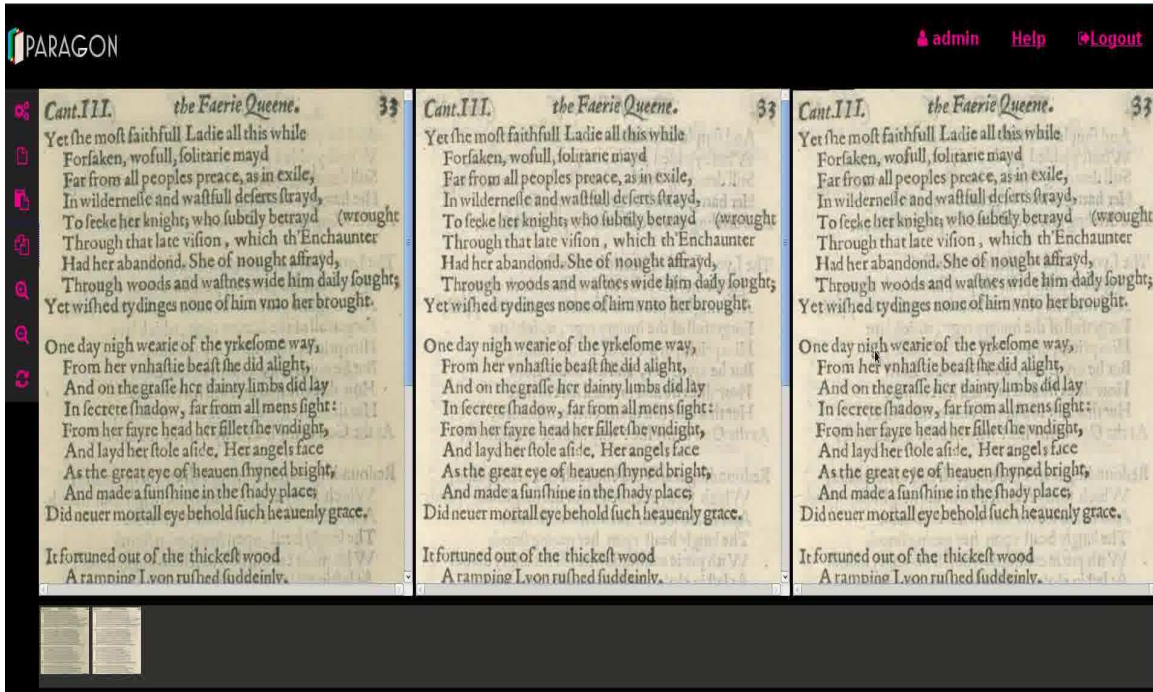 PARAGON
admin
Help
Logout
Cant.III. the Faerie Queene. 33
Yet ſhe moſt faithfull Ladie all this while
Forſaken, wofull, ſolitarie mayd
Far from all peoples preace, as in exile,
In wilderneſſe and waſtfull deſerts ſtrayd,
To ſeeke her knight; who ſubtily betrayd (wrought
Through that late viſion , which th'Enchaunter
Had her abandond. She of nought affrayd,
Through woods and waſtnes wide him daily ſought;
Yet wiſhed tydinges none of him vnto her brought.
One day nigh wearie of the yrkeſome way,
From her vnhaſtie beaſt ſhe did alight,
And on the graſſe her dainty limbs did lay
In ſecrete ſhadow, far from all mens ſight:
From her fayre head her fillet ſhe vndight,
And layd her ſtole aſide. Her angels face
As the great eye of heauen ſhyned bright,
And made a ſunſhine in the ſhady place;
Did neuer mortall eye behold ſuch heauenly grace.
It fortuned out of the thickeſt wood
A ramping Lyon ruſhed ſuddeinly,
Cant.III. the Faerie Queene. 33
Yet ſhe moſt faithfull Ladie all this while
Forſaken, wofull, ſolitarie mayd
Far from all peoples preace, as in exile,
In wilderneſſe and waſtfull deſerts ſtrayd,
To ſeeke her knight; who ſubtily betrayd (wrought
Through that late viſion , which th'Enchaunter
Had her abandond. She of nought affrayd,
Through woods and waſtnes wide him daily ſought;
Yet wiſhed tydinges none of him vnto her brought.
One day nigh wearie of the yrkeſome way,
From her vnhaſtie beaſt ſhe did alight,
And on the graſſe her dainty limbs did lay
In ſecrete ſhadow, far from all mens ſight:
From her fayre head her fillet ſhe vndight,
And layd her ſtole aſide. Her angels face
As the great eye of heauen ſhyned bright,
And made a ſunſhine in the ſhady place;
Did neuer mortall eye behold ſuch heauenly grace.
It fortuned out of the thickeſt wood
A ramping Lyon ruſhed ſuddeinly,
Cant.III. the Faerie Queene. 33
Yet ſhe moſt faithfull Ladie all this while
Forſaken, wofull, ſolitarie mayd
Far from all peoples preace, as in exile,
In wilderneſſe and waſtfull deſerts ſtrayd,
To ſeeke her knight; who ſubtily betrayd (wrought
Through that late viſion , which th'Enchaunter
Had her abandond. She of nought affrayd,
Through woods and waſtnes wide him daily ſought;
Yet wiſhed tydinges none of him vnto her brought.
One day nigh wearie of the yrkeſome way,
From her vnhaſtie beaſt ſhe did alight,
And on the graſſe her dainty limbs did lay
In ſecrete ſhadow, far from all mens ſight:
From her fayre head her fillet ſhe vndight,
And layd her ſtole aſide. Her angels face
As the great eye of heauen ſhyned bright,
And made a ſunſhine in the ſhady place;
Did neuer mortall eye behold ſuch heauenly grace.
It fortuned out of the thickeſt wood
A ramping Lyon ruſhed ſuddeinly,